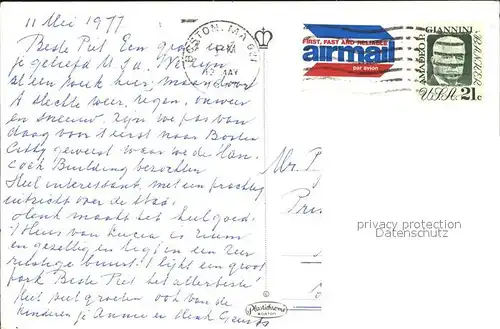 11 Mei 1977
Beste Piet Een groet uit
je geliefd U.S.A. We zijn
al een week hier, maar door
't slechte weer, regen, onweer
en sneeuw. zijn we pas van
daag voor 't eerst naar Boston
Citty geweest waar we de Han
cock Building bezochten
Heel interessant, met een prachtig
uitzicht over de stad.
Henk maakt het heel goed.
't Huis van Lucia is ruim
en gezellig en ligt in een zeer
rustige buurt. 't lijkt een groot
park Beste Piet het allerbeste
Heel veel groeten ook van de
kinderen je Annie en Henk
BOSTON, MA
PM
MAY
FIRST, FAST AND RELIABLE
airmail
par avion
AMADEO P. GIANNINI
BANKER
U.S.A. 21c
Mr. P
Prin
privacy protection
DatenSchutz
©
Plastichrome
BOSTON